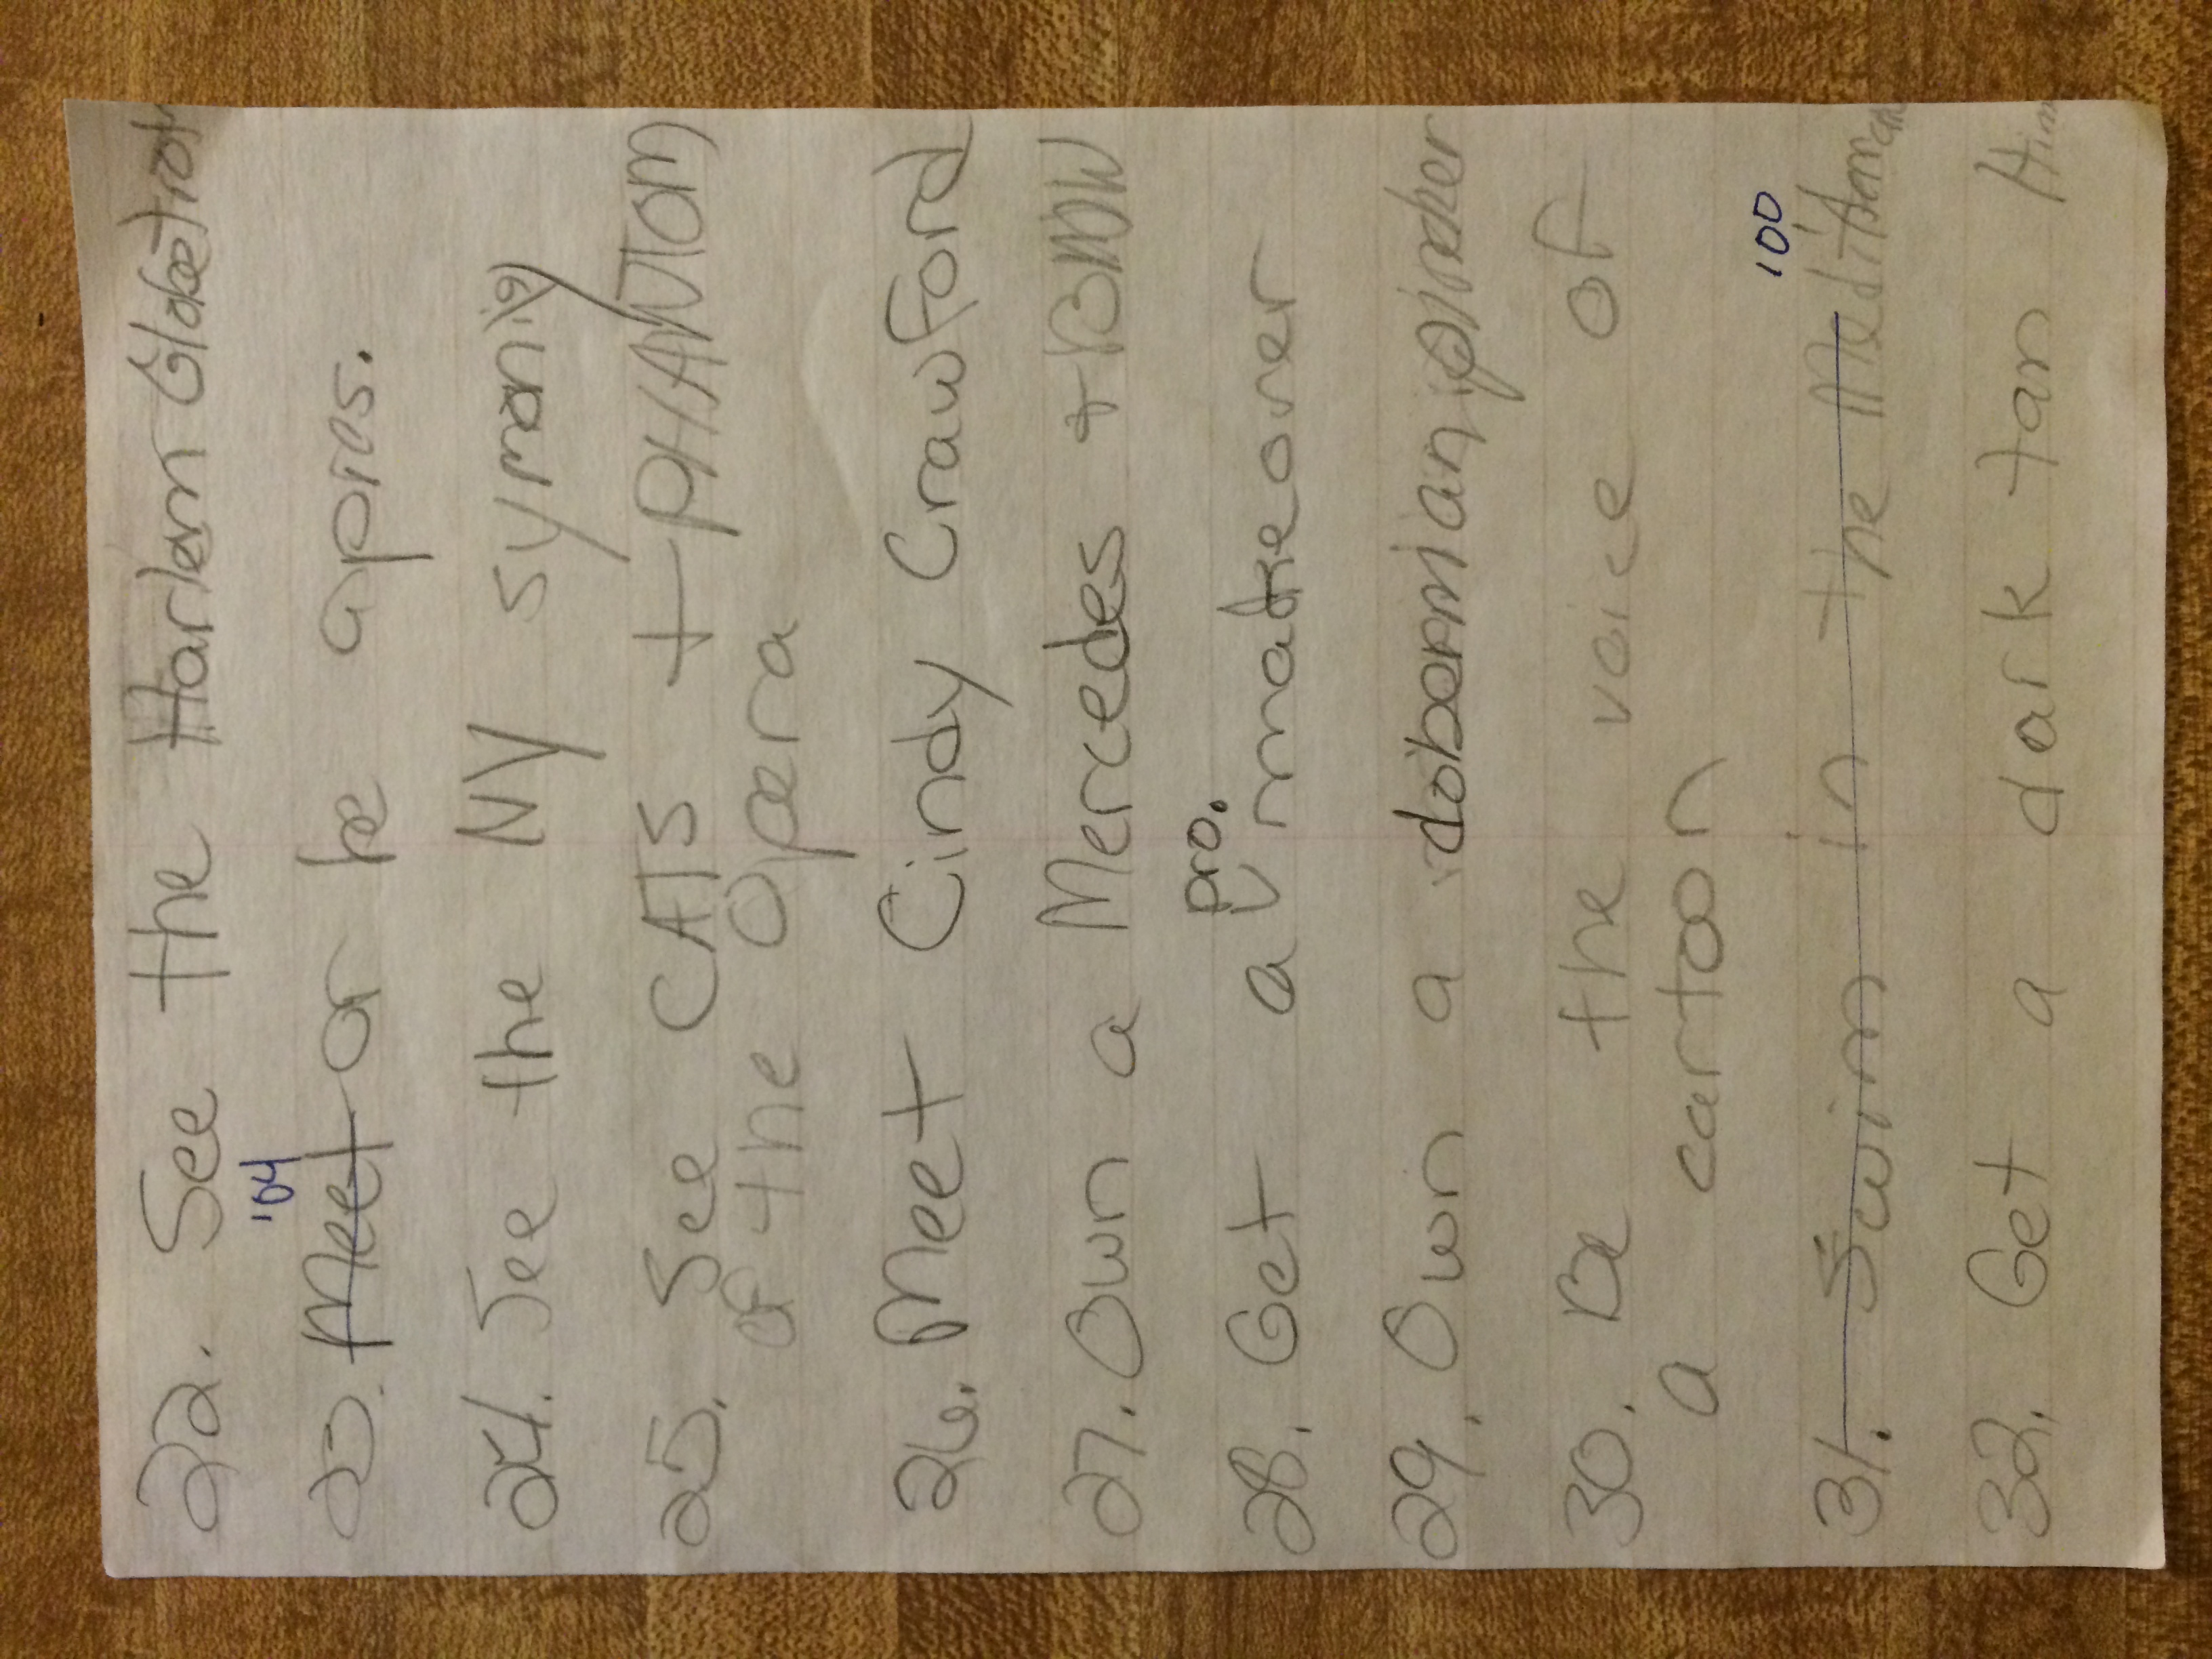 22. See the Harlem Globetrot
'04
23. Meet or be a pres.
24. See the NY symony
25. See CATS + PHANTOM
of the Opera
26. Meet Cindy Crawford
27. Own a Mercedes + BMW
pro.
28. Get a makeover
29. Own a dobermian pincher
30. Be the voice of
a cartoon
'00
31. Swim in the
32. Get a dark tan